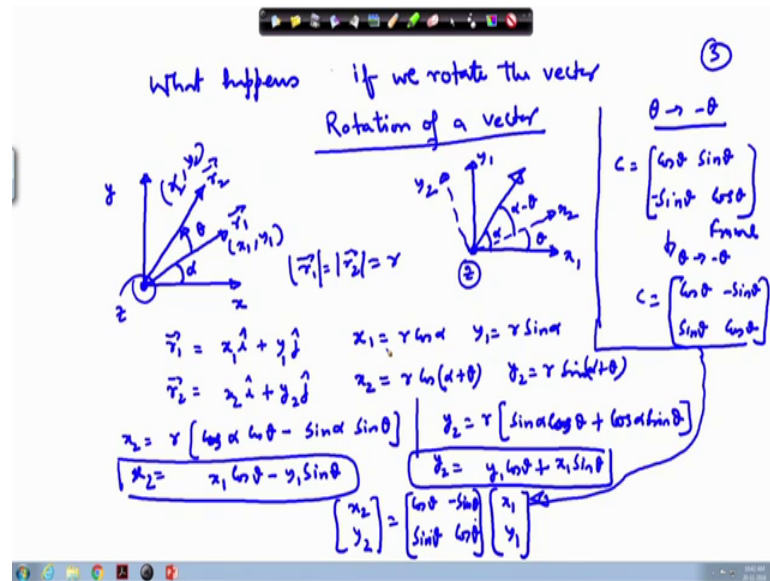 ③
What happens if we rotate the vector
Rotation of a vector
θ → -θ
C = [cosθ sinθ
-sinθ cosθ]
Frame
θ → -θ
C = [cosθ -sinθ
sinθ cosθ]
y
(x₂, y₂) r⃗₂
θ
r⃗₁
(x₁, y₁)
α
z
x
|r⃗₁| = |r⃗₂| = r
y₂
y₁
α-θ
x₂
α
θ
x₁
z
r⃗₁ = x₁î + y₁ĵ
x₁ = r cosα y₁ = r sinα
r⃗₂ = x₂î + y₂ĵ
x₂ = r cos(α+θ) y₂ = r sin(α+θ)
x₂ = r [cosα cosθ - sinα sinθ]
y₂ = r [sinα cosθ + cosα sinθ]
x₂ = x₁ cosθ - y₁ sinθ
y₂ = y₁ cosθ + x₁ sinθ
[x₂
y₂] = [cosθ -sinθ
sinθ cosθ] [x₁
y₁]